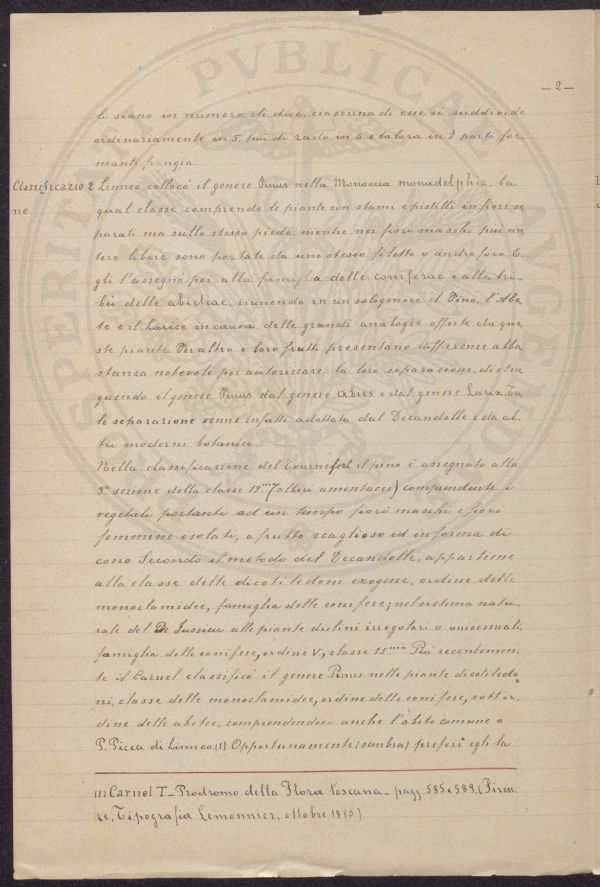 — 2 —
li siano in numero di due, ciascuna di esse si suddivide
ordinariamente in 5 più di rado in 6 e talora in 7 parti for
manti frangia.
Classificazio 2 Linneo collocò il genere Pinus nella Monoecia monadelphia, la
ne
qual classe comprende le piante con stami e pistilli in fiori se
parati ma sullo stesso piede, mentre nei fiori maschi più an
tere libere sono portate da uno stesso filetto o androforo. E
gli l'assegnò poi alla famiglia delle coniferae e alla tri-
bù delle abieteae, riunendo in un solo genere il Pino, l'Abe
te e il Larice in causa delle grandi analogie offerte da que
ste piante. Per altro i loro frutti presentano differenze abba
stanza notevoli per autorizzare la loro separazione, distin
guendo il genere Pinus dal genere Abies e dal genere Larix. Ta
le separazione venne infatti adottata dal Decandolle e da al-
tri moderni botanici.
Nella classificazione del Tournefort il pino è assegnato alla
3ª sezione della classe 19ma (alberi amentacei) comprendente i
vegetali portanti ad un tempo fiori maschi e fiori
femminei isolati, a frutto scaglioso ed in forma di
cono. Secondo il metodo del Decandolle, appartiene
alla classe delle dicotiledoni exogene, ordine delle
monoclamidee, famiglia delle conifere; nel sistema natu-
rale del De Jussieu alle piante diclini irregolari o unisessuali,
famiglia delle conifere, ordine V, classe 15ma Più recentemen-
te il Caruel classificò il genere Pinus nelle piante dicotiledo-
ni, classe delle monoclamidee, ordine delle conifere, sott'or-
dine delle abetee, comprendendovi anche l'abeto comune o
P. Picea di Linneo. (1) Opportunamente (sembra) preferì egli la
(1) Caruel T_ Prodromo della Flora Toscana _ pagg. 585 e 589, (Firen
ze, Tipografia Lemonnier, ottobre 1860)
PVBLICA